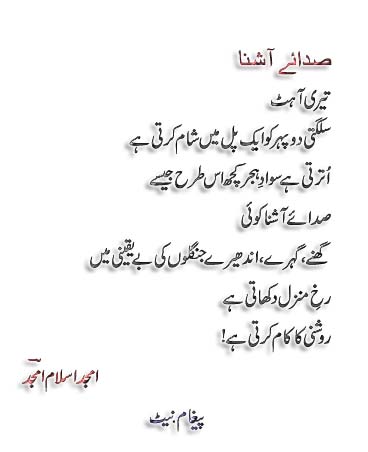 صدائے آشنا
تیری آہٹ
سلگتی دوپہر کو ایک پل میں شام کرتی ہے
اُترتی ہے سوادِ ہجر کچھ اس طرح جیسے
صدائے آشنا کوئی
گھنے، گہرے، اندھیرے جنگلوں کی بے یقینی میں
رخِ منزل دکھاتی ہے
روشنی کا کام کرتی ہے!
امجد اسلام امجدؔ
پیغام نیٹ